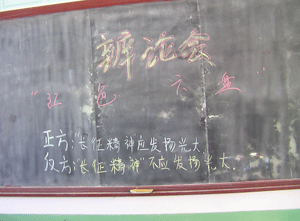 辩论会
“红色六盘”
正方:“长征精神应发扬光大.
反方:“长征精神”不应发扬光大.